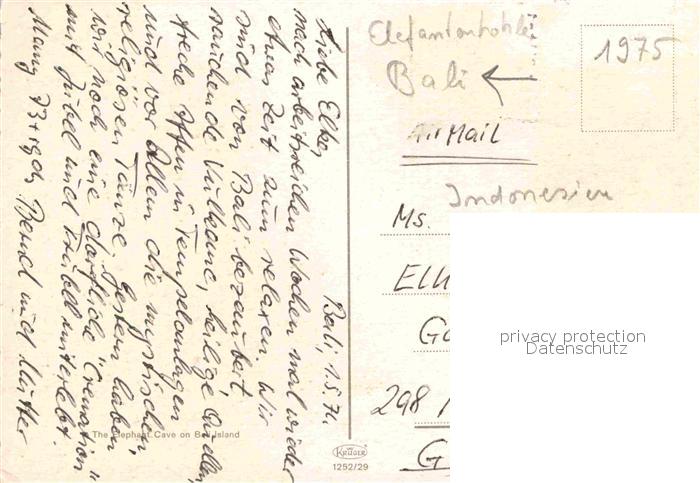 Bali, 1.5.74
Liebe Elken
nach arbeitsreichen Wochen mal wieder
etwas Zeit zum relaxen. Wir
sind von Bali bezaubert
rauchende Vulkane, heilige Quellen,
freche Affen in Tempelanlagen
und vor allem die mystischen,
religiösen Tänze. Gestern haben
wir noch eine dörfliche "Cremation"
mit Jubel und Trubel miterlebt.
Many 73 + Bernd und Mutter
The Elephant Cave on Bali Island
KRÜGER
1252/29
Elefantenhöhle
Bali
1975
AIR MAIL
Indonesien
Ms.
298
G
privacy protection
Datenschutz